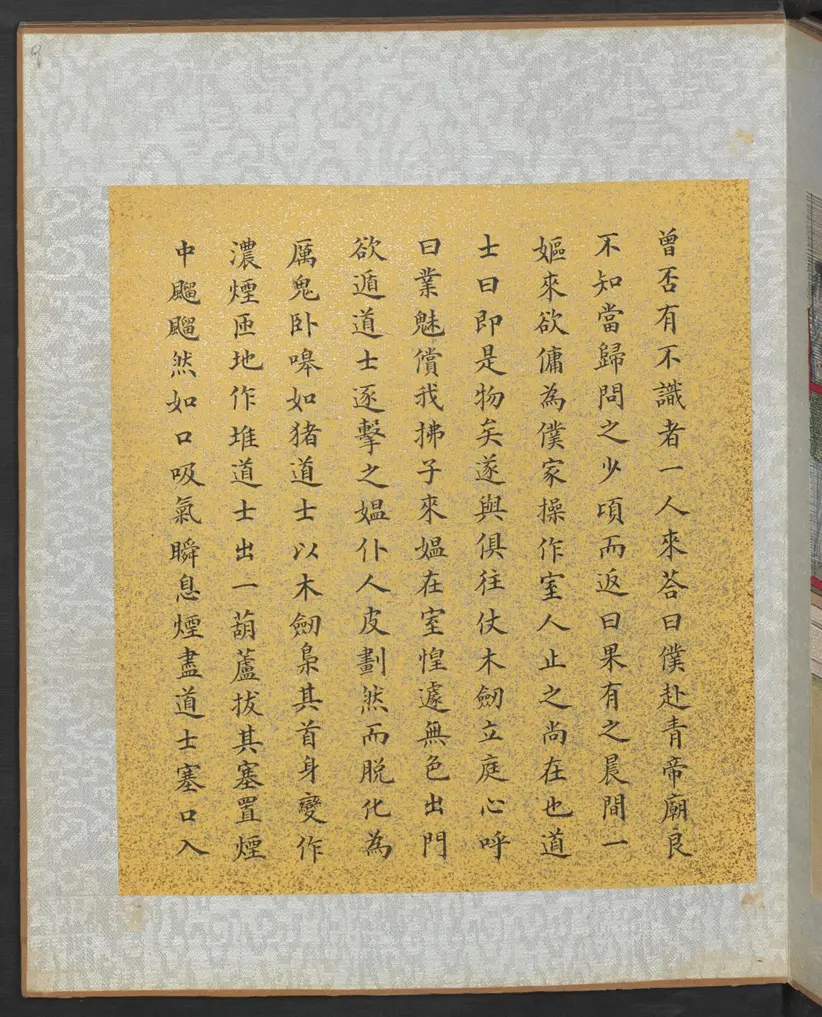 曾否有不識者一人來荅曰僕赴青帝廟良
不知當歸問之少頃而返曰果有之晨間一
嫗來欲傭為僕家操作室人止之尚在也道
士曰即是物矣遂與俱往仗木劒立庭心呼
曰業魅償我拂子來媼在室惶遽無色出門
欲遁道士逐擊之媼仆人皮劃然而脱化為
厲鬼卧嗥如猪道士以木劒梟其首身變作
濃煙匝地作堆道士出一葫蘆拔其塞置煙
中飀飀然如口吸氣瞬息煙盡道士塞口入
9